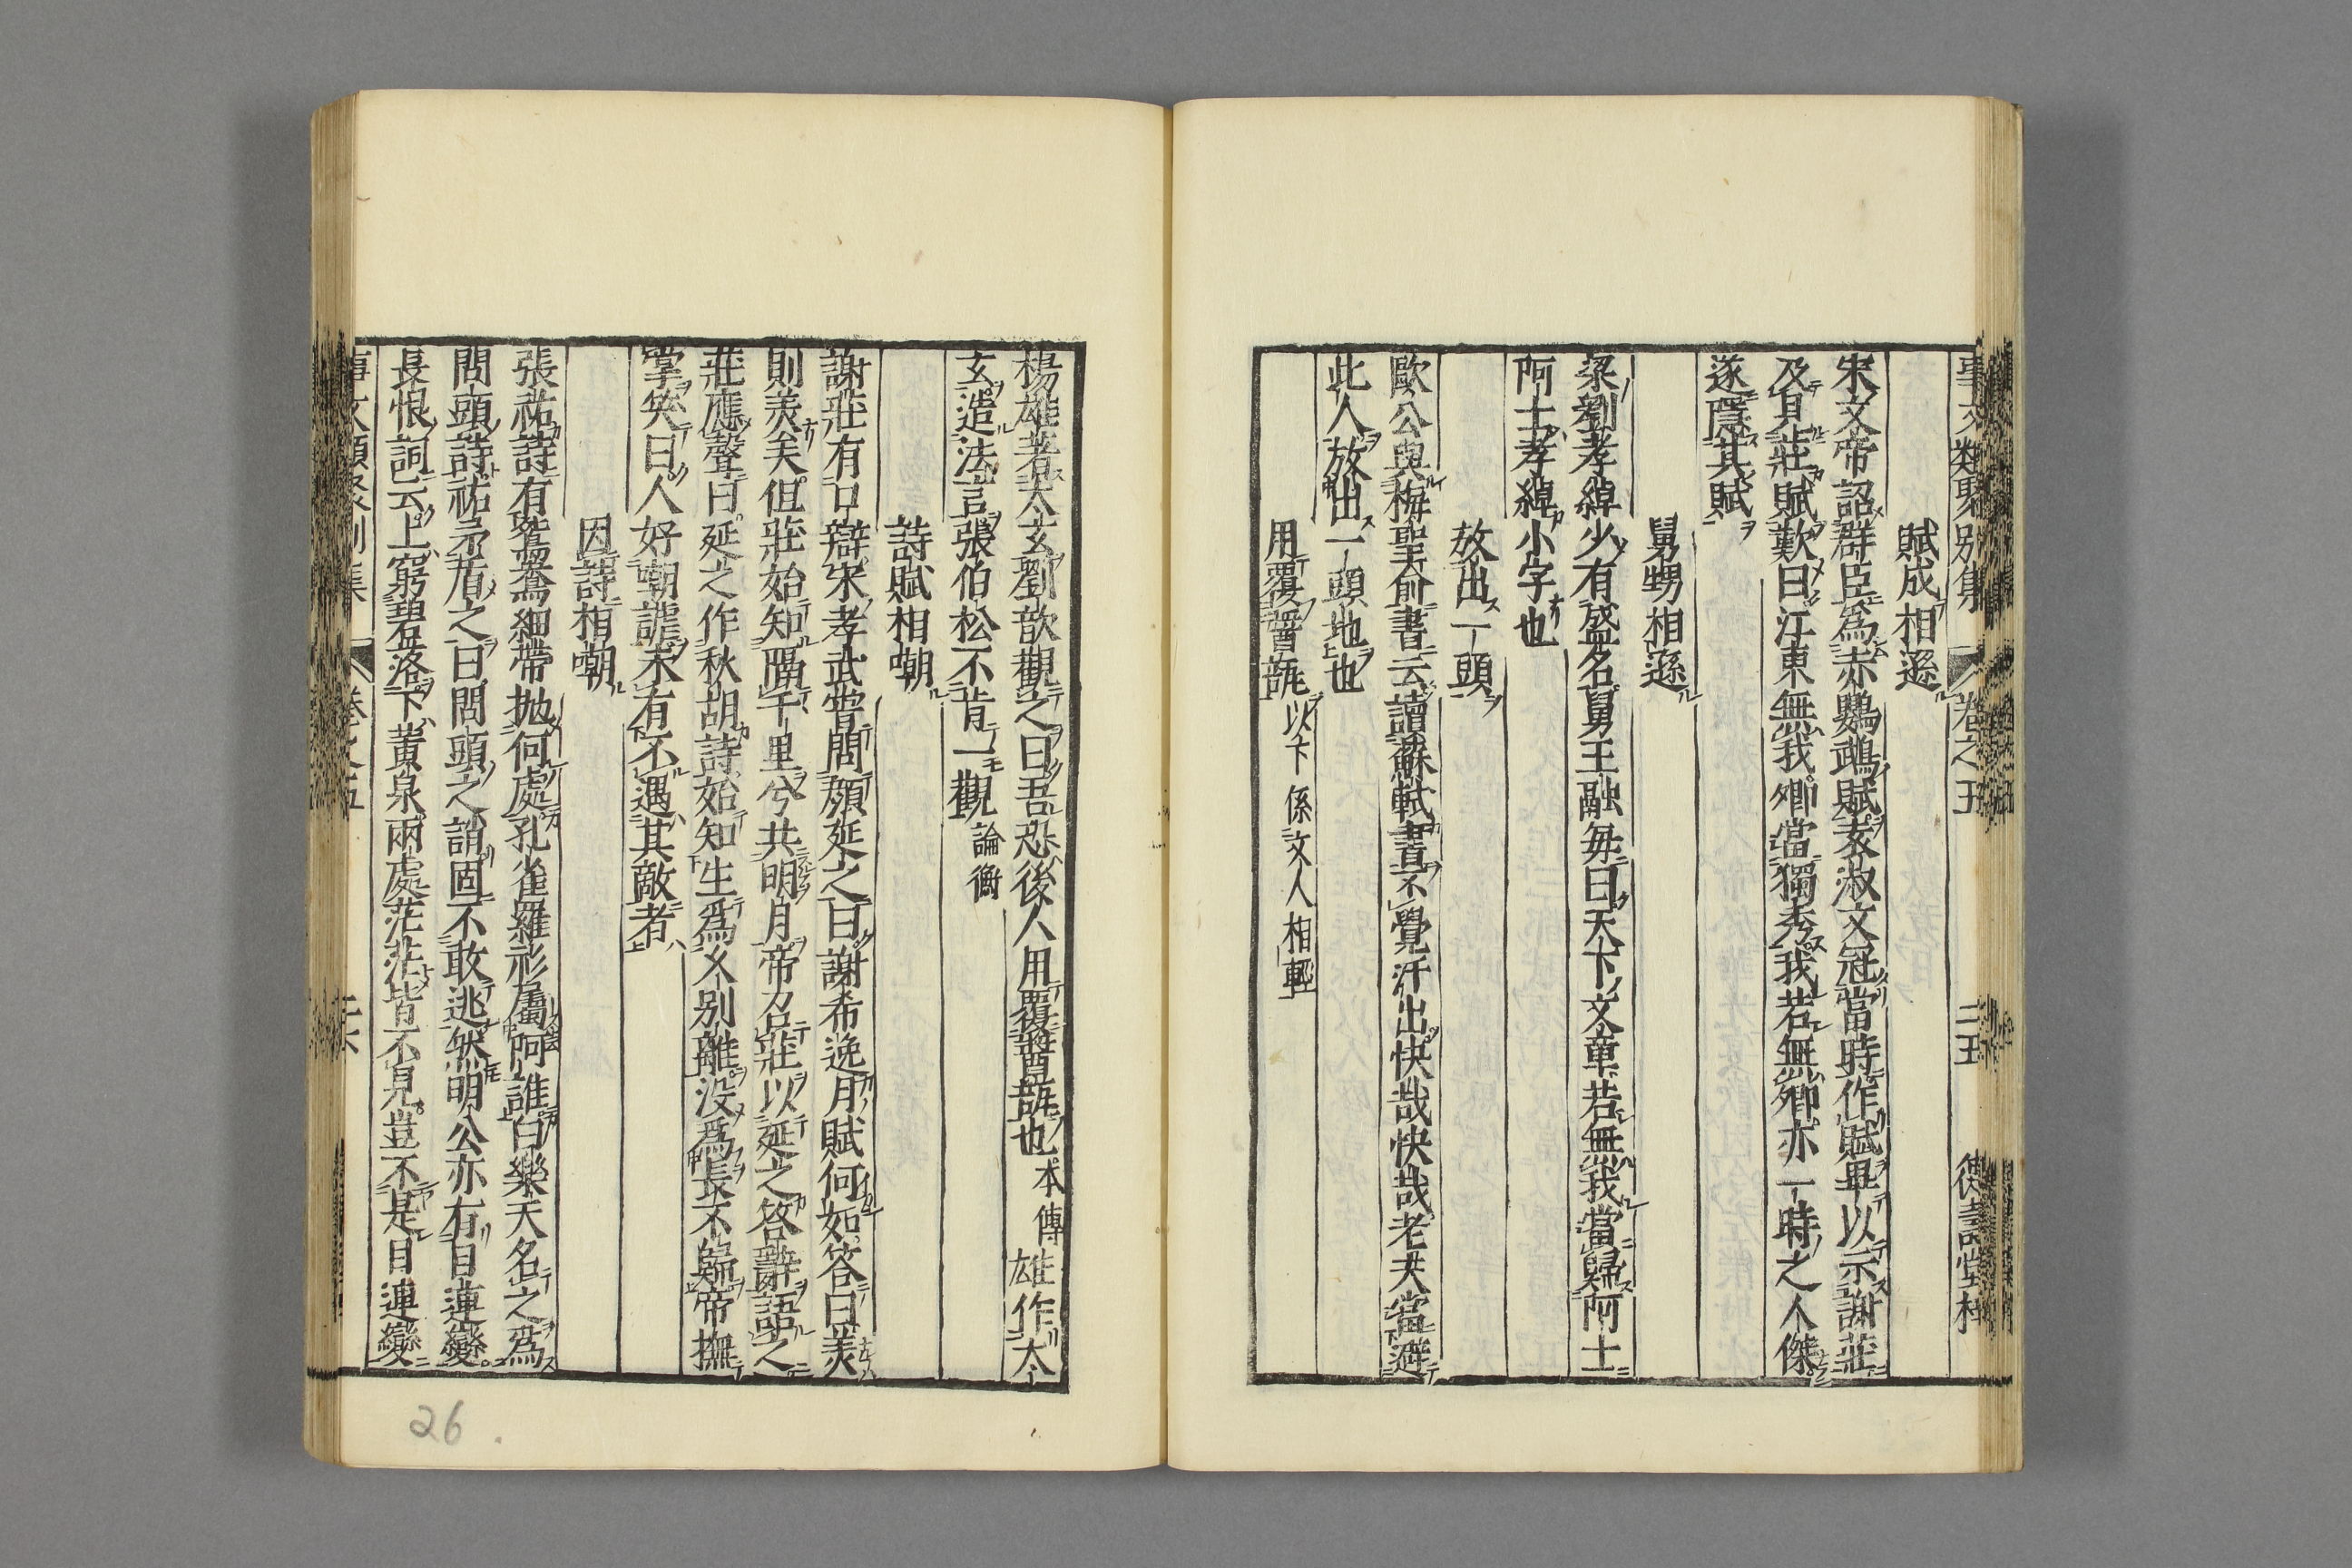 事文類聚別集 卷之五 二五 德壽堂梓
賦成相遜
宋文帝詔群臣爲赤鸚鵡賦袁淑文冠當時作賦畢以示謝莊
及見莊賦歎曰江東無我卿當獨秀我若無卿亦一時之人傑
遂隱其賦
舅甥相遜
梁劉孝綽少有盛名舅王融每曰天下文章若無我當歸阿士
阿士孝綽小字也
放出一頭
歐公與梅聖俞書云讀蘇軾書不覺汗出快哉快哉老夫當避
此人放出一頭地也
用覆醬瓿 以下係文人相輕
楊雄著太玄劉歆觀之曰吾恐後人用覆醬瓿也 本傳 雄作太
玄造法言張伯松不肯一觀 論衡
詩賦相嘲
謝莊有口辯宋孝武嘗問顏延之曰謝希逸月賦何如答曰美
則美矣但莊始知隔千里兮共明月帝召莊以延之答辭語之
莊應聲曰延之作秋胡詩始知生爲久別離没爲長不歸帝撫
掌笑曰人好嘲謔未有不遇其敵者
因詩相嘲
張祜詩有鴛鴦細帶抛何處孔雀羅衫屬阿誰白樂天名之爲
問頭詩祜矛盾之曰問頭之誚固不敢逃然明公亦有目連變
長恨詞云上窮碧落下黄泉兩處茫茫皆不見豈不是目連變
事文類聚別集 卷之五 二六
26